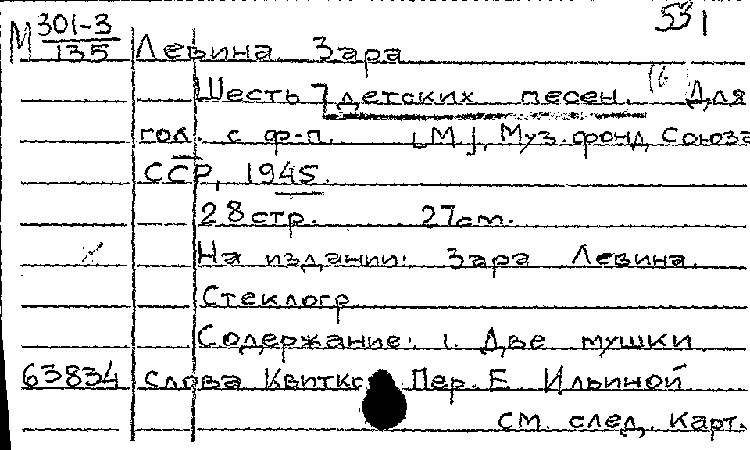 М 301-3 531
135 Левина Зара
Шесть детских песен. (6 Для
гол. с ф-п. [М], Муз. фонд Союза
ССР, 1945.
28 стр. 27 см.
На издании: Зара Левина
Стеклогр
Содержание: 1. Две мушки
63834 Слова Квитко Пер. Е Ильиной
см след. карт.